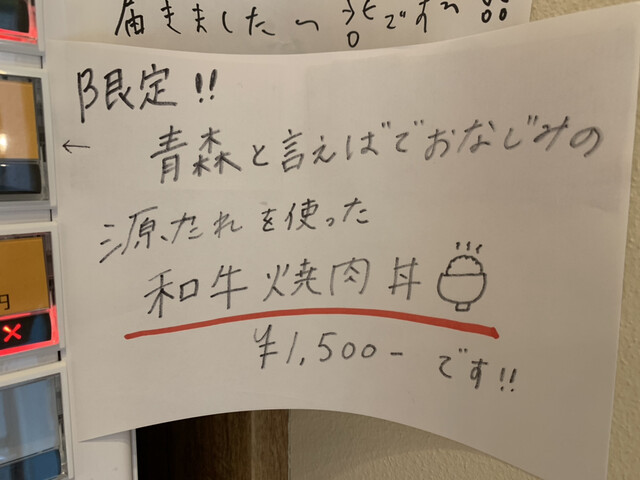 届きました〜
です〜
限定!!
←
青森と言えばでおなじみの
源たれを使った
和牛焼肉丼
¥1,500-です!!
円